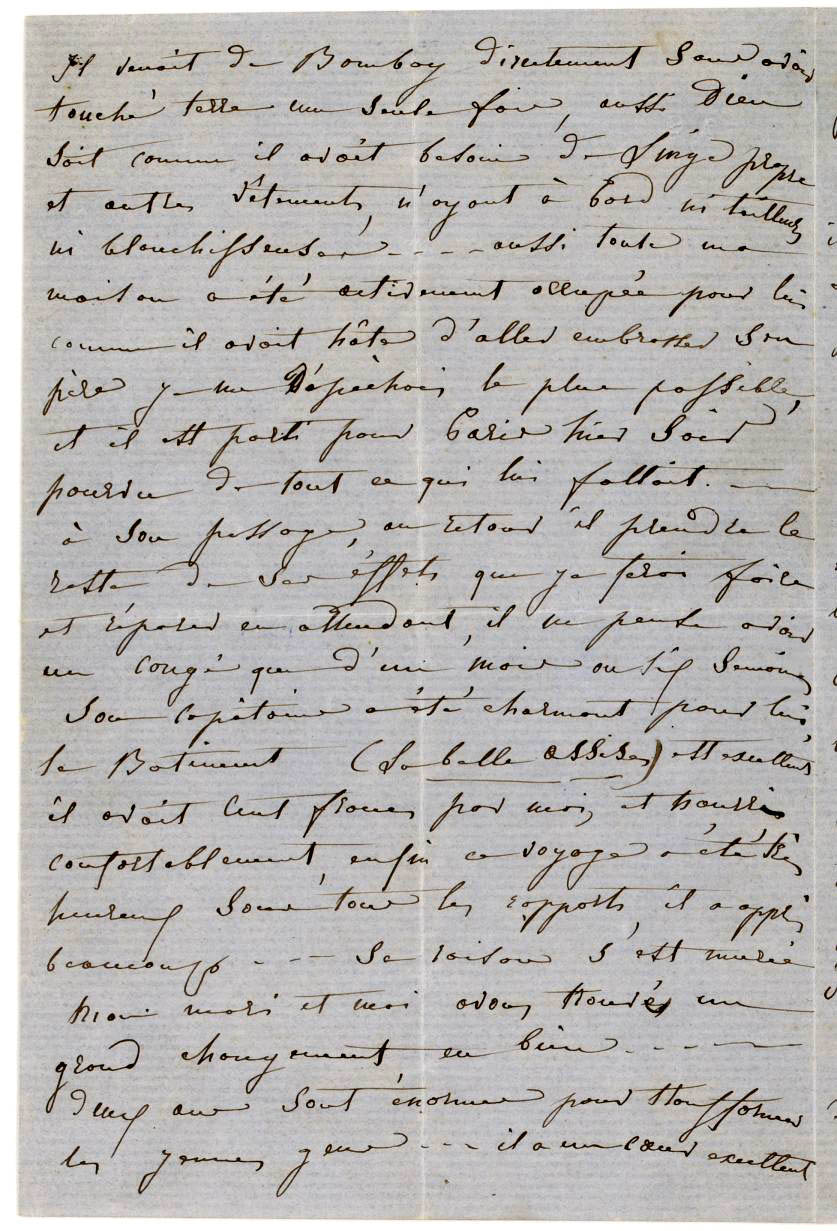 Il venait de Bombay directement sans avoir
touché terre une seule fois, aussi Dieu
sait comme il avait besoin de linge propre
et autres vêtements, n'ayant à bord ni tailleurs
ni blanchisseuses - - - - aussi toute ma
maison a été activement occupée pour lui
comme il avait hâte d'aller embrasser son
père je me dépêchais le plus possible,
et il est parti pour Paris hier soir
pourvu de tout ce qui lui fallait. —
à son passage, au retour il prendra le
reste de ses éffets que je ferai faire
et réparer en attendant, il ne pense avoir
un congé que d'un mois ou six semaines
Son capitaine a été charmant pour lui,
le Batiment (La belle assise) est excellent
il avait cent francs par mois, et nourri
confortablement, enfin ce voyage a été très
heureux sous tous les rapports, il a appris
beaucoup - - - Sa raison s'est murie
mon mari et moi avons trouvés un
grand changement en bien - - - -
deux ans sont énorme pour transformer
les jeunes gens - - - il a un cœur excellent